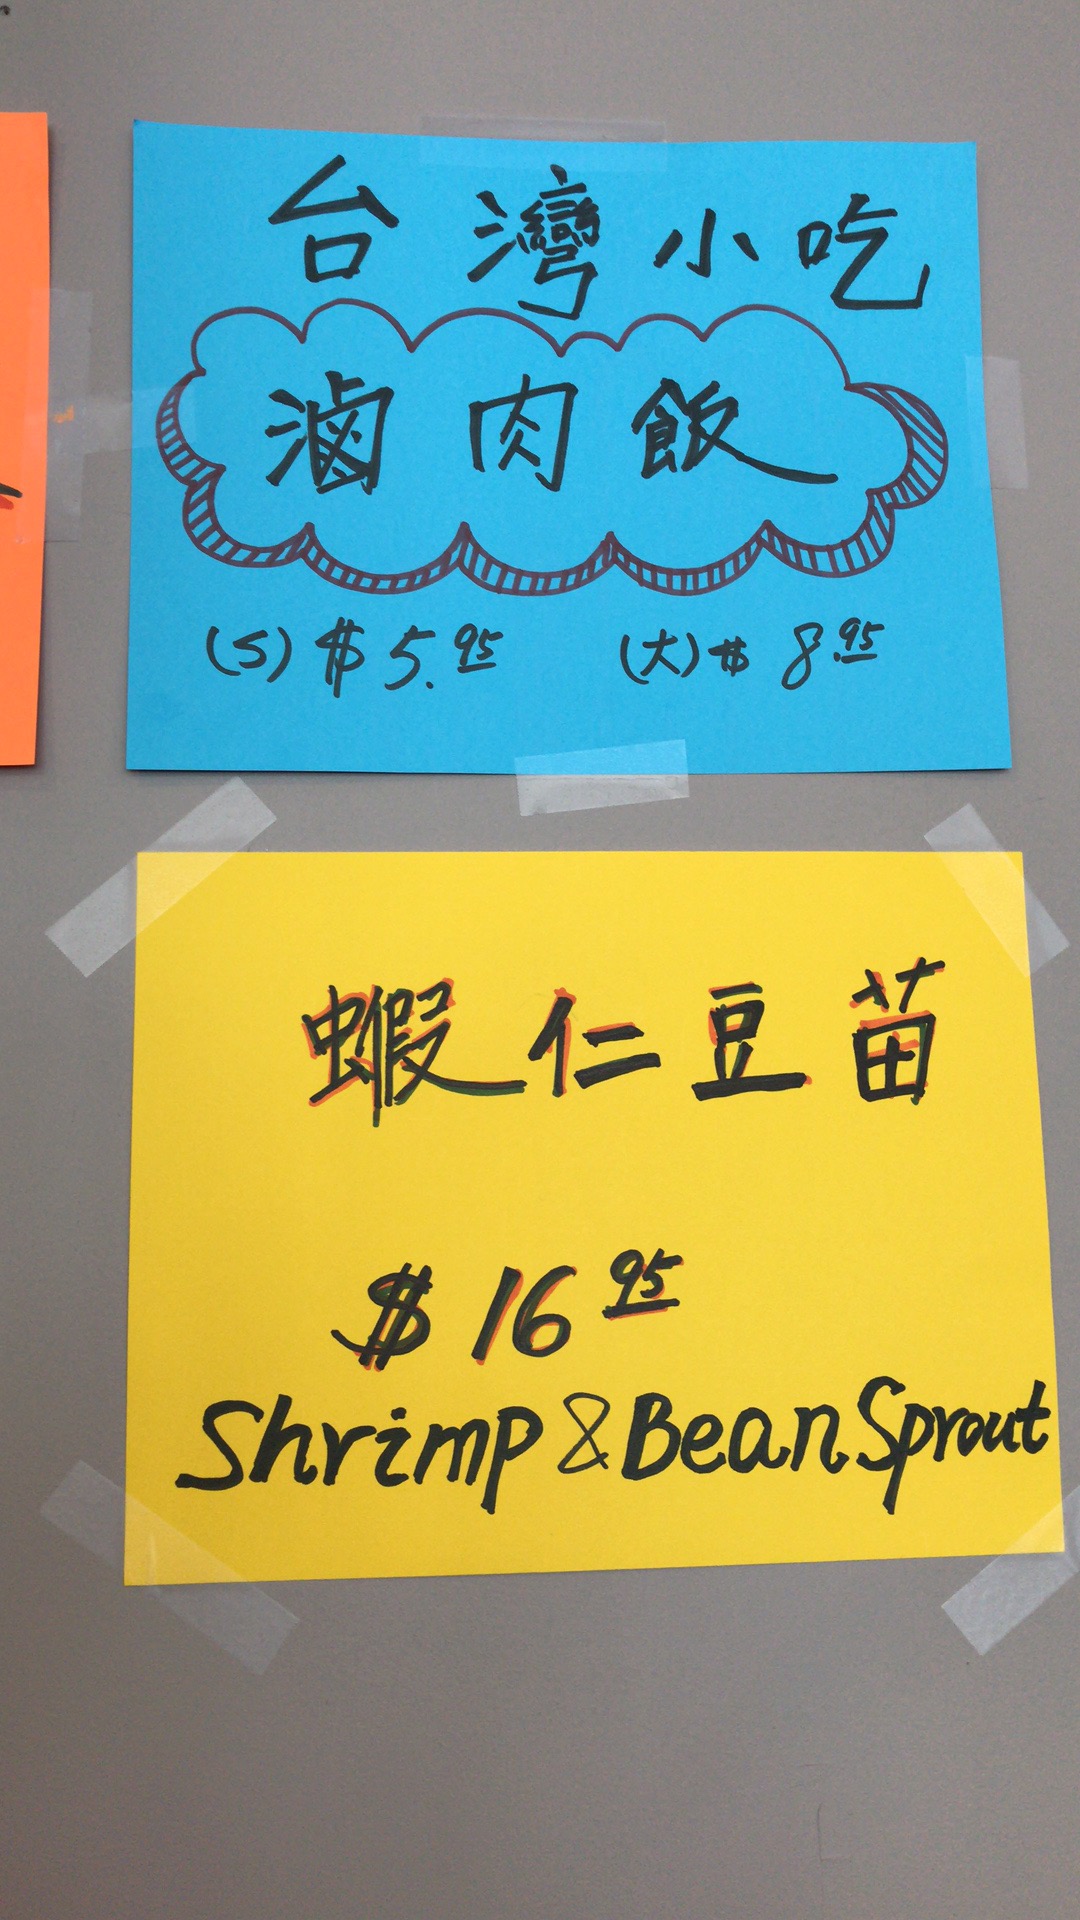 台灣小吃
滷肉飯
(S) $5.95 (大) $8.95
蝦仁豆苗
$16.95
Shrimp & Bean Sprout